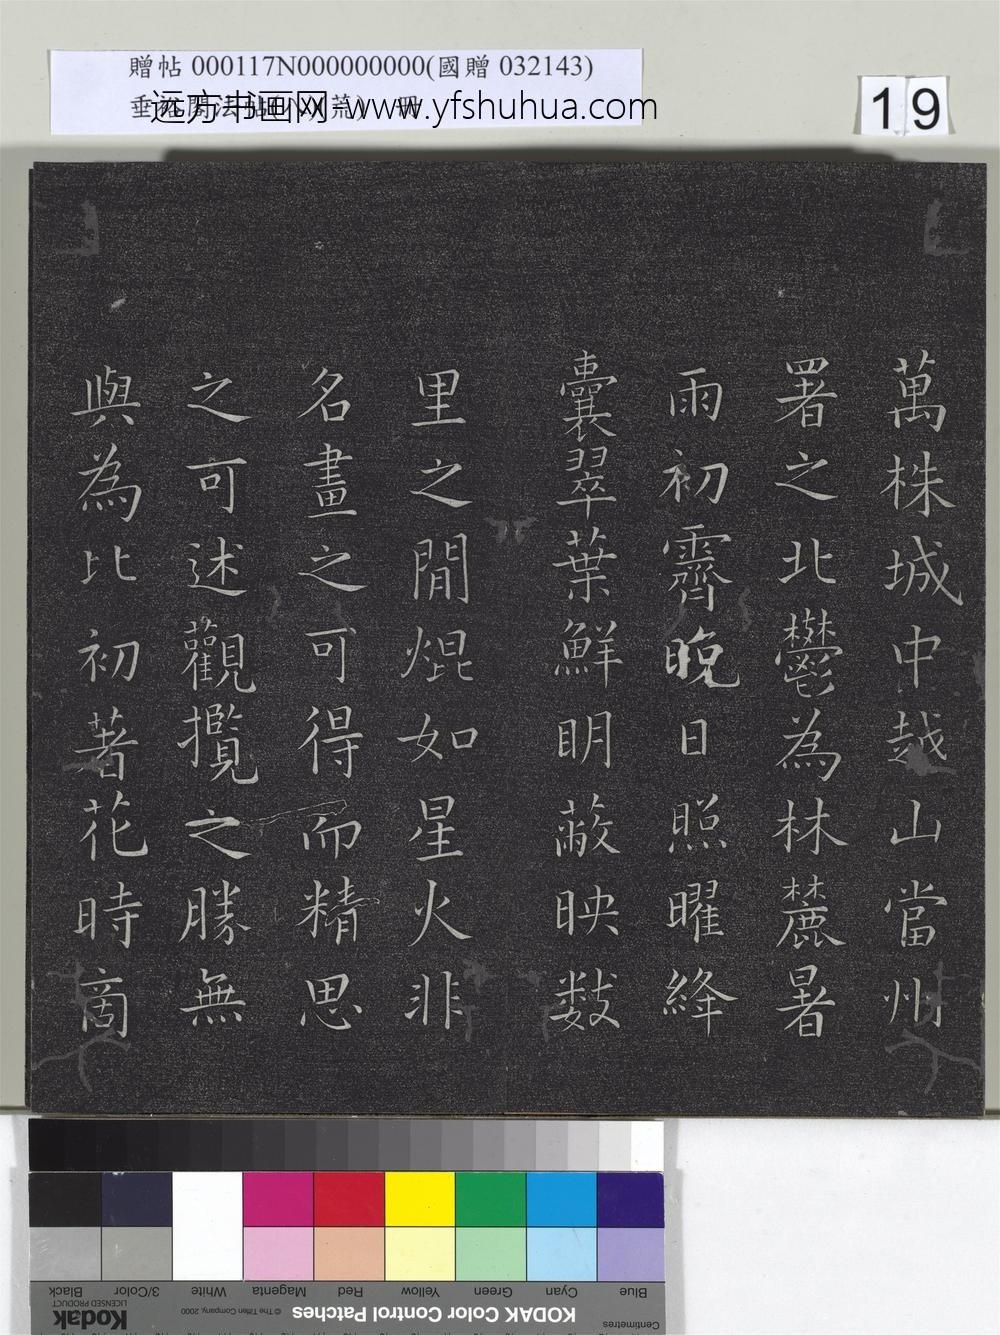 贈帖 000117N000000000(國贈 032143)
远方书画网-www.yfshuhua.com
19
萬株城中越山當州
署之北鬱為林麓暑
雨初霽晚日照曜絳
囊翠葉鮮明蔽映数
里之間焜如星火非
名畫之可得而精思
之可述觀攬之勝無
與為比初著花時商
Blue Cyan Green Yellow Red Magenta White 3/Color Black
KODAK Color Control Patches
© The Tiffen Company, 2000
Kodak
LICENSED PRODUCT
Centimetres